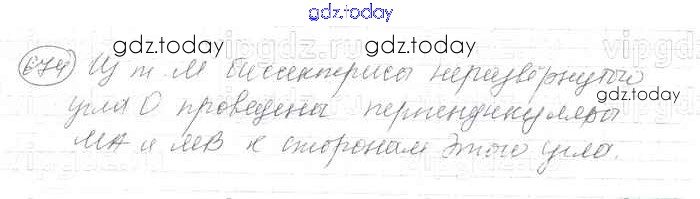 gdz.today
gdz.today gdz.today
674) Из т. М биссектрисы неразвёрнутого
gdz.today
угла О проведены перпендикуляры
МА и МВ к сторонам этого угла.